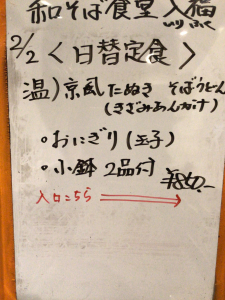 和そば食堂 入福
いり ふく
2/2 〈日替定食〉
温) 京風 たぬき そばうどん
(きざみあんかけ)
・おにぎり (玉子)
・小鉢 2品付
入口こちら →